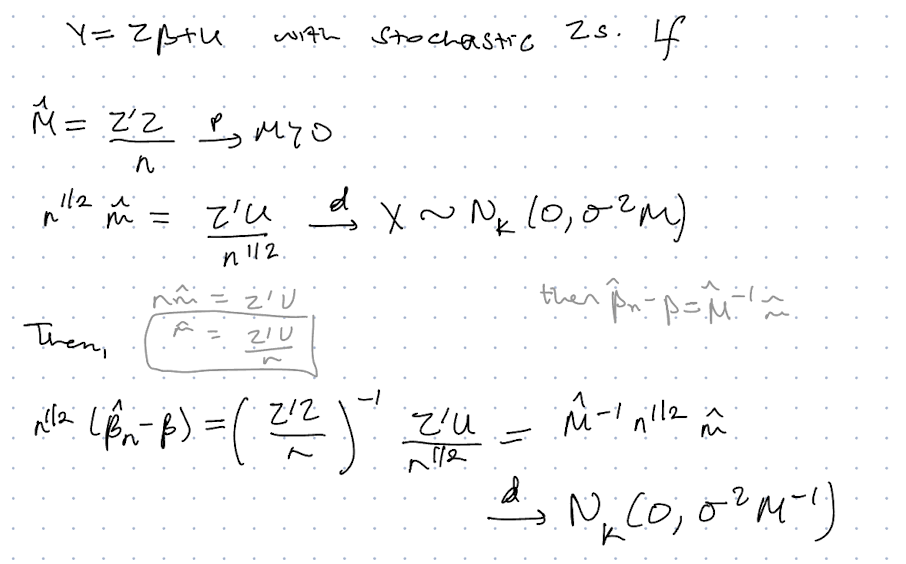 Y = Zβ+u with stochastic Zs. If
M̂ = Z'Z/n →p M>0
n^1/2 m̂ = Z'u/n^1/2 →d X ~ N_k (0, σ²M)
nm̂ = Z'U
then β̂_n - β = M̂^-1 m̂
Then, m̂ = Z'U/n
n^1/2 (β̂_n - β) = (Z'Z/n)^-1 Z'u/n^1/2 = M̂^-1 n^1/2 m̂
→d N_k (0, σ² M^-1)